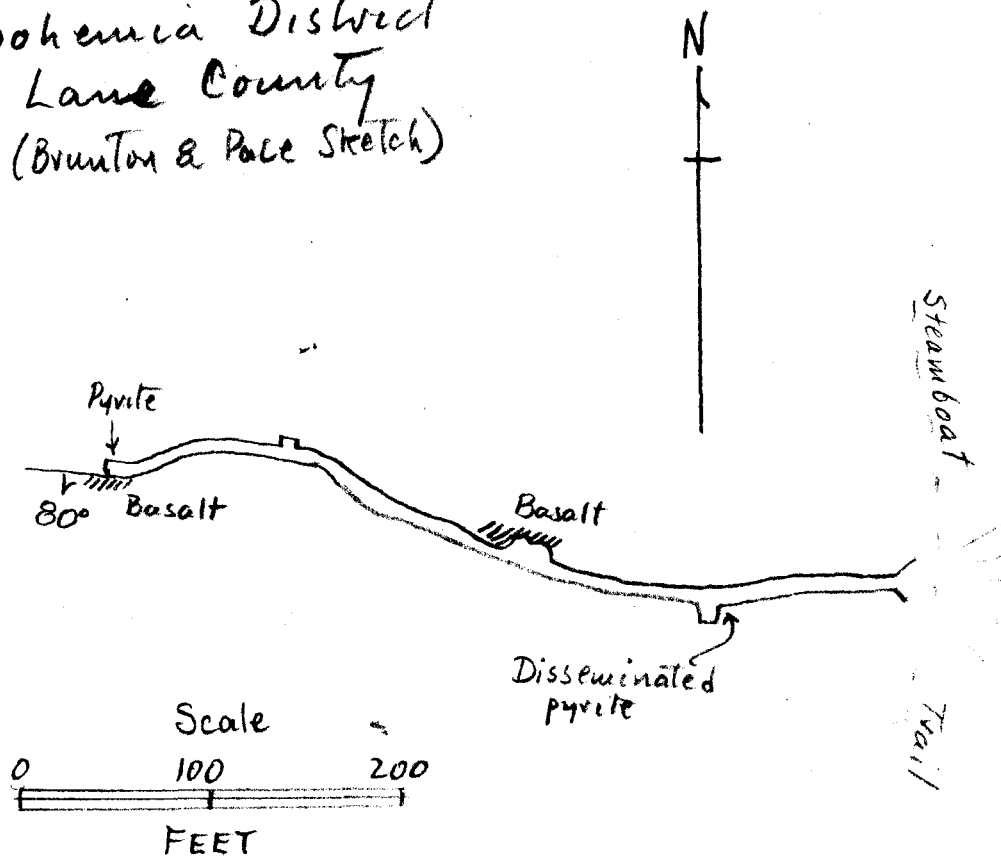 Bohemia District
Lane County
(Brunton & Pace Sketch)
N
Steamboat
Trail
Pyrite
80°
Basalt
Basalt
Disseminated
pyrite
Scale
0 100 200
FEET